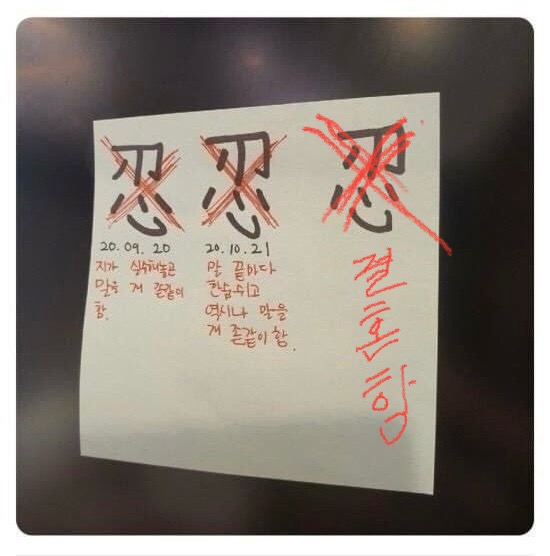 忍 忍 忍
20.09.20
지가 실수해놓곤
말을 개 좆같이
함.
20.10.21
말 끝마다
한숨쉬고
역시나 말을
개 좆같이 함.
결혼함